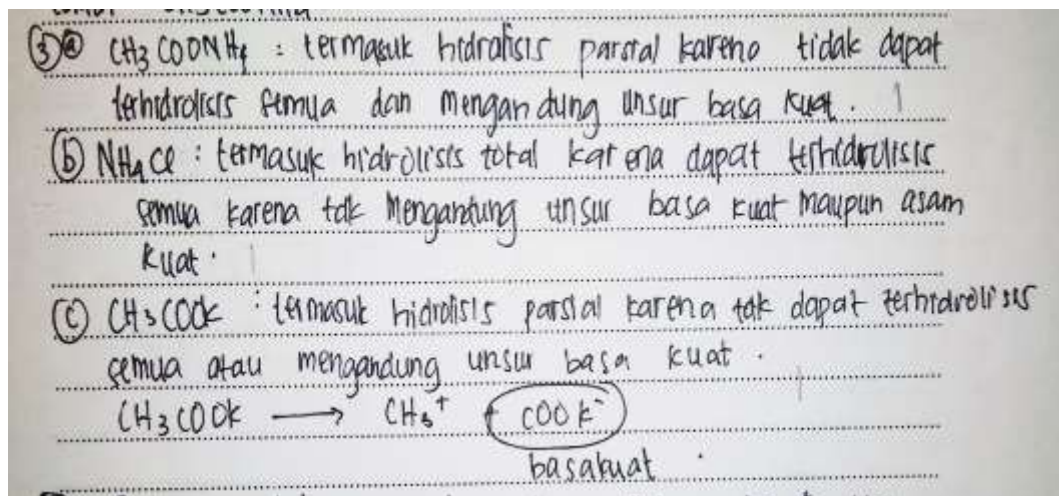 ③ ⓐ CH3COONH4 : termasuk hidrolisis parsial karena tidak dapat
terhidrolisis semua dan mengandung unsur basa kuat.
ⓑ NH4Cl : termasuk hidrolisis total karena dapat terhidrolisis
semua karena tdk mengandung unsur basa kuat maupun asam
kuat.
ⓒ CH3COOK : termasuk hidrolisis parsial karena tdk dapat terhidrolisis
semua atau mengandung unsur basa kuat.
CH3COOK → CH3+ + COOK-
basa kuat.